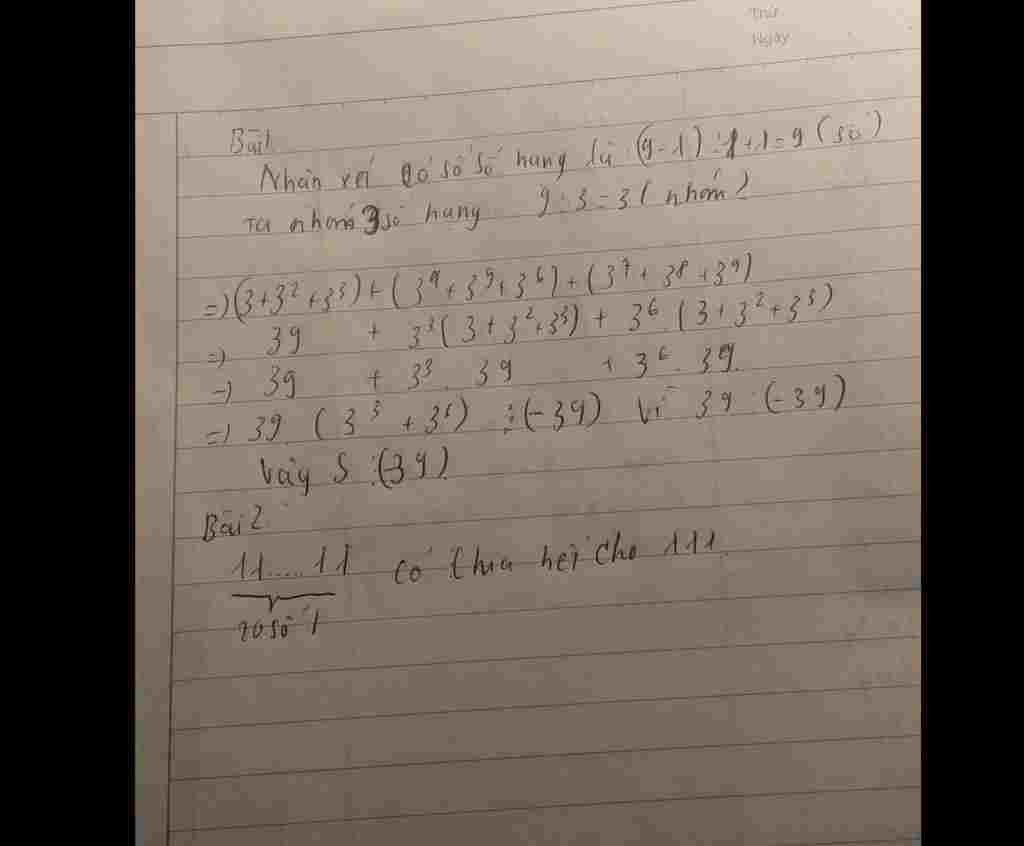 Thứ
Ngày
Bài 1
Nhận xét có số số hạng là (9-1) : 1 + 1 = 9 (số)
Ta nhóm 3 số hạng 9 : 3 = 3 ( nhóm )
=) (3+3² +3³) + (3⁴ + 3⁵ + 3⁶) + (3⁷ + 3⁸ + 3⁹)
=) 39 + 3³( 3 + 3² + 3³) + 3⁶ . (3 + 3² + 3³)
=) 39 + 3³ . 39 + 3⁶ . 39
=) 39 . ( 3³ + 3⁶) ⋮ (-39) Vì 39 ⋮ (-39)
Vậy S ⋮ (39)
Bài 2
11....11 có chia hết cho 111
20 số 1